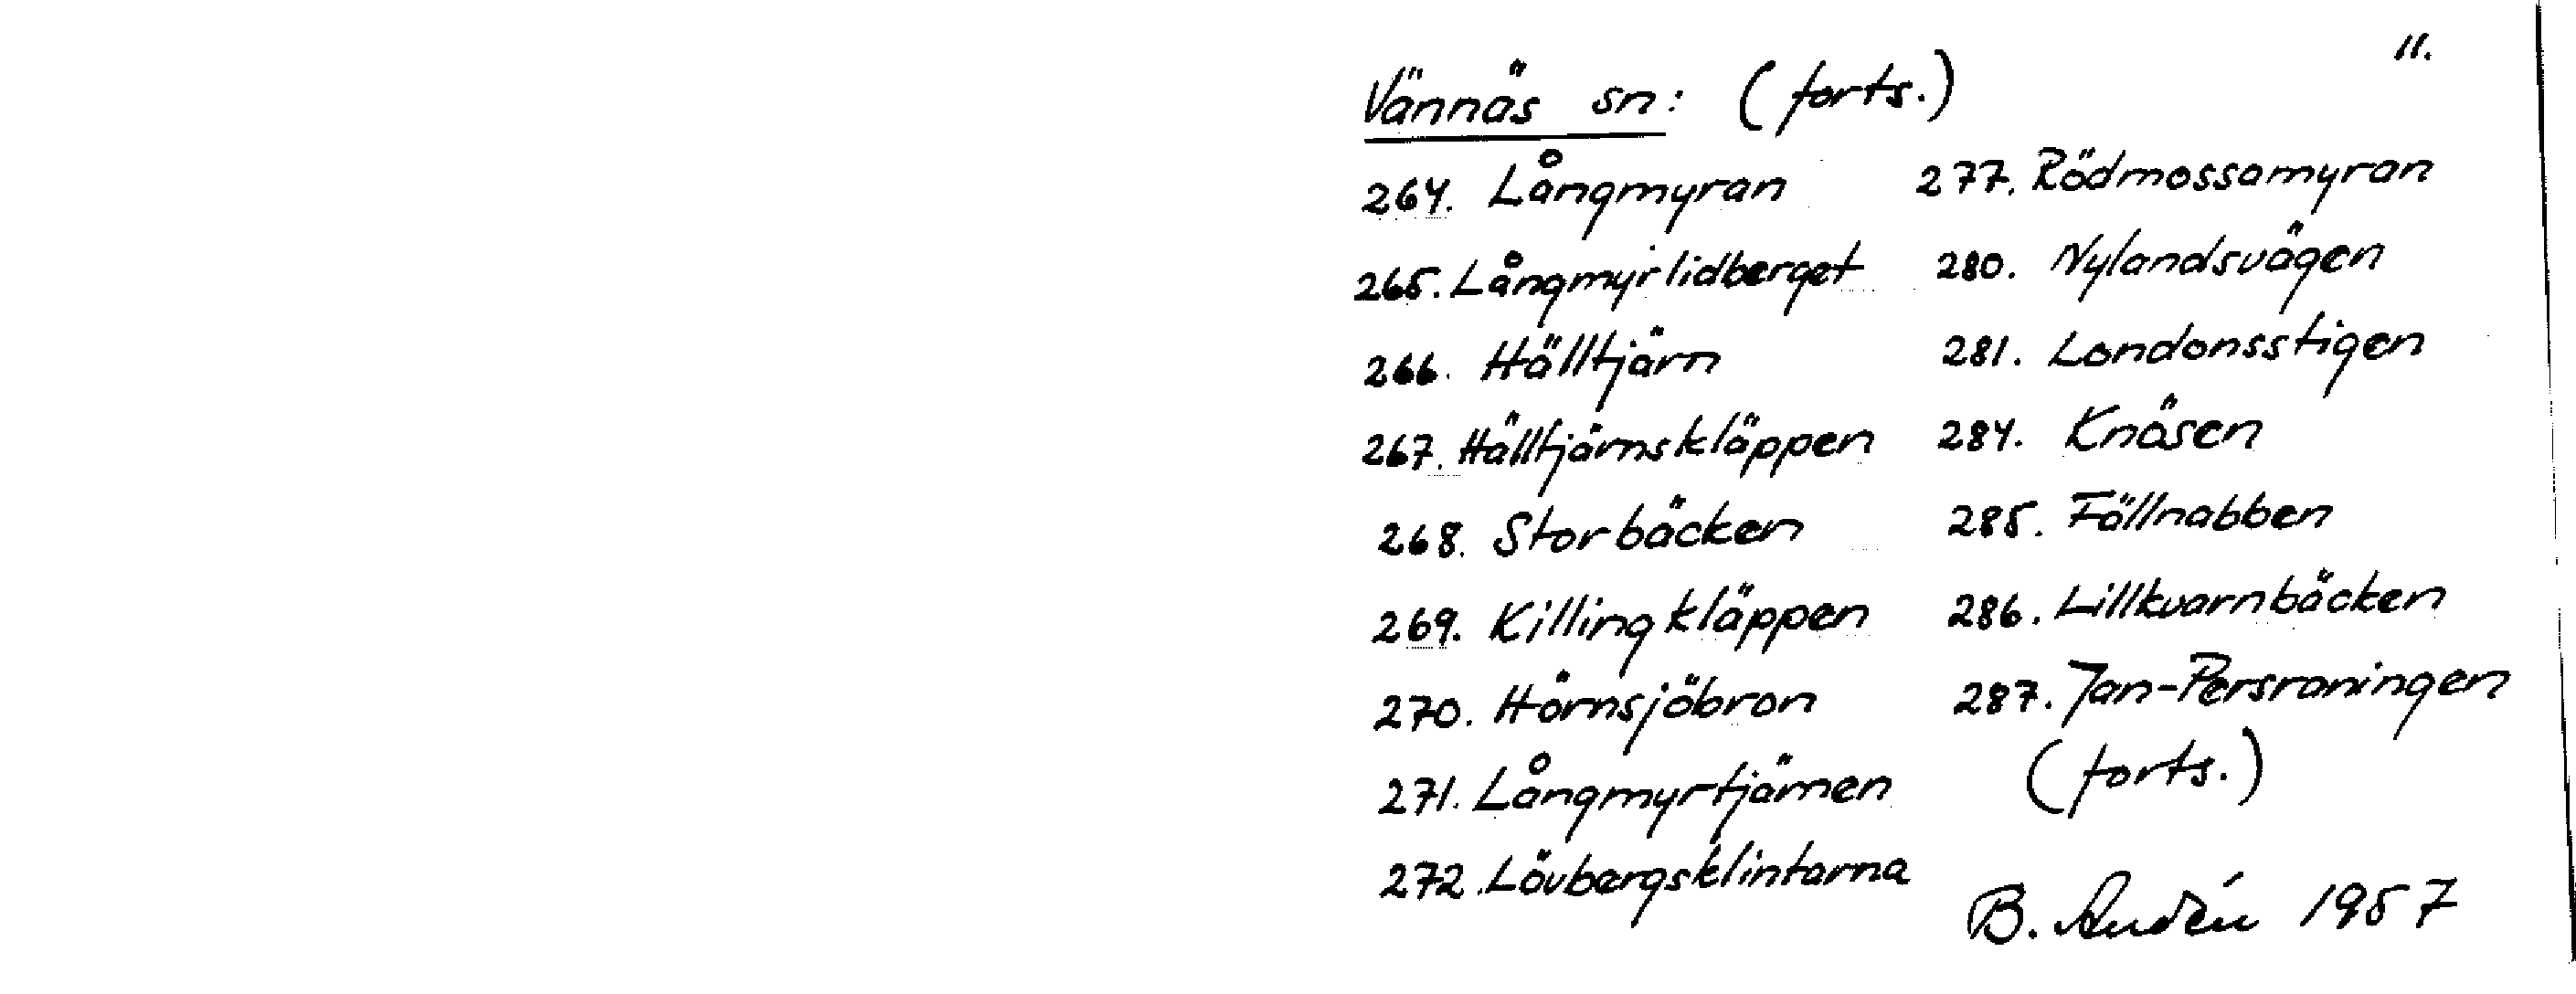 11.
Vännäs sn: (forts.)
264. Långmyran
265. Långmyrlidberget
266. Hälltjärn
267. Hälltjärnskläppen
268. Storbäcken
269. Killingkläppen
270. Hörnsjöbron
271. Långmyrtjärnen
272. Lövbergsklintarna
277. Rödmossamyran
280. Nylandsvägen
281. Londonsstigen
284. Knösen
285. Fällnabben
286. Lillkvarnbäcken
287. Jan-Persraningen
(forts.)
B. Audén 1957